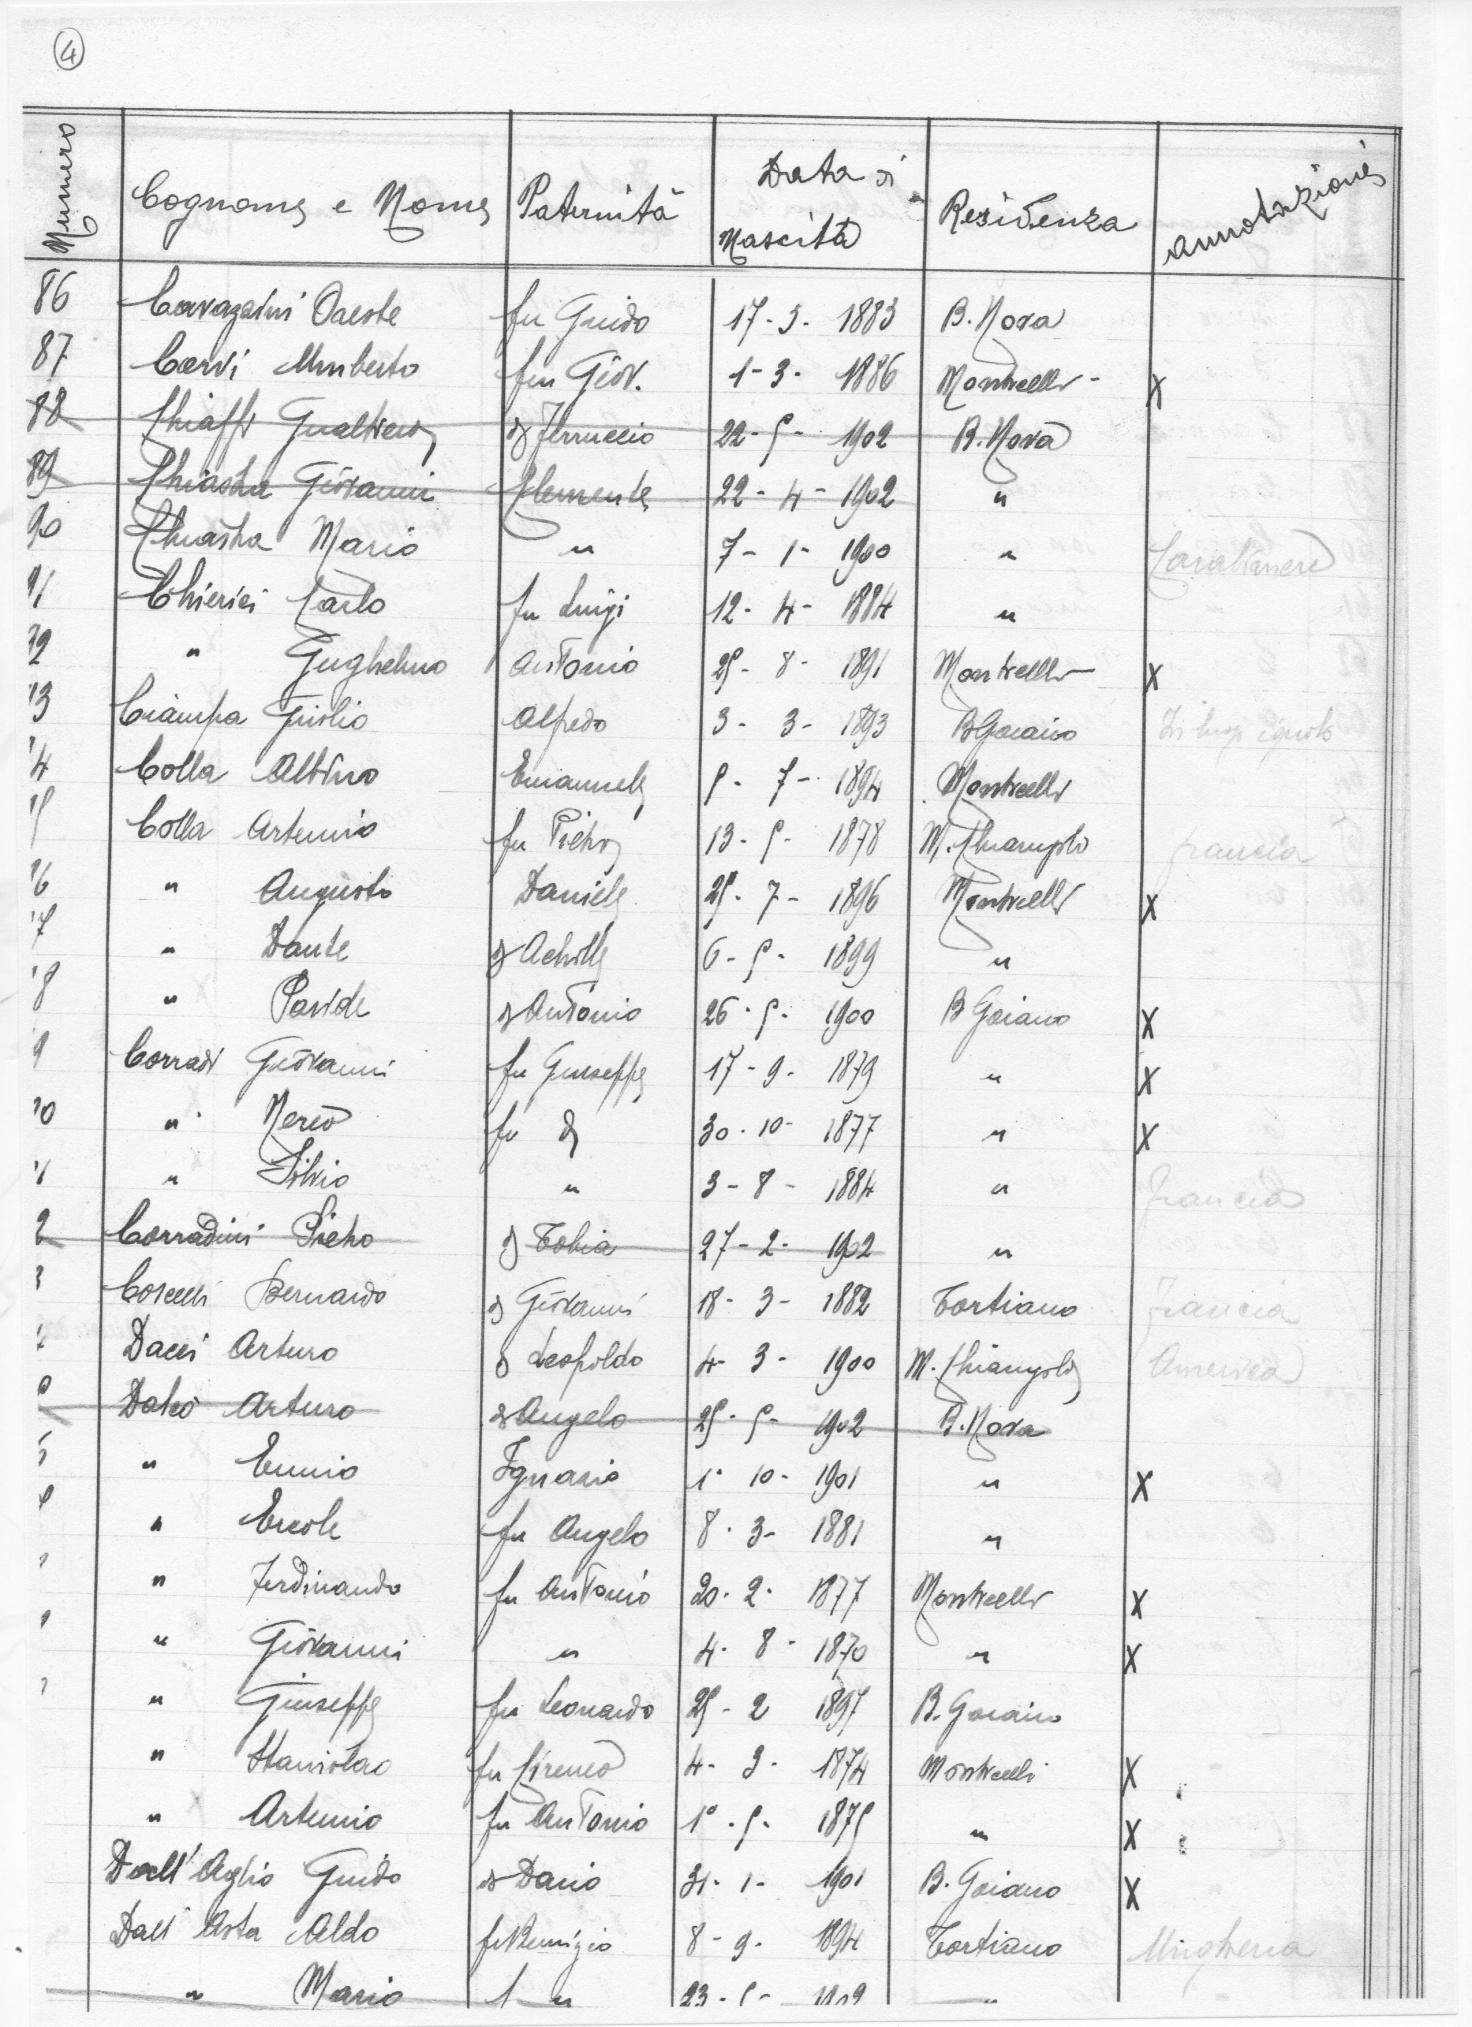 4
Numero Cognome e Nome Paternità Data di Nascita Residenza annotazioni
86 Cavazzini Oreste fu Guido 17-3-1883 B. Nova
87 Cervi Umberto fu Giov. 1-3-1886 Monticelli X
88 Chiaffi Gualtiero di Ferruccio 22-5-1902 B. Nova
89 Chiastra Giovanni Clemente 22-4-1902 "
90 Chiastra Mario " 7-1-1900 " Carabiniere
91 Chierici Carlo fu Luigi 12-4-1884 "
92 " Guglielmo Antonio 25-8-1891 Monticelli X
93 Ciampa Giulio Alfredo 3-3-1893 B Gaiano
94 Colla Albino Emanuele 5-7-1894 Monticelli
95 Colla Artemio fu Pietro 13-5-1878 M. Chiarugolo Francia
96 " Augusto Daniele 25-7-1896 Monticelli X
97 " Dante di Achille 6-5-1899 "
98 " Paride di Antonio 26-5-1900 B Gaiano X
9 Corradi Giovanni fu Giuseppe 17-9-1879 " X
10 " Nereo fu di 30-10-1877 " X
" Silvio " 3-8-1884 " Francia
2 Corradini Pietro di Tobia 27-2-1902 "
3 Coscelli Bernardo di Giovanni 18-3-1882 Tortiano Francia
Dacci Arturo di Leopoldo 4-3-1900 M. Chiarugolo America
Dalcò Arturo di Angelo 25-5-1902 B. Nova
5 " Ennio Ignazio 1-10-1901 " X
" Ercole fu Angelo 8-3-1881 "
" Ferdinando fu Antonio 20-2-1877 Monticelli X
" Giovanni " 4-8-1870 " X
" Giuseppe fu Leonardo 25-2 1897 B. Gaiano
" Stanislao fu Cireneo 4-3-1874 Monticelli X
" Artemio fu Antonio 1°-5-1875 " X
Dall'Aglio Guido di Dario 31-1-1901 B. Gaiano X
Dall'Asta Aldo fu Remigio 8-9-1894 Tortiano Ungheria
" Mario " 23-5-1902 "